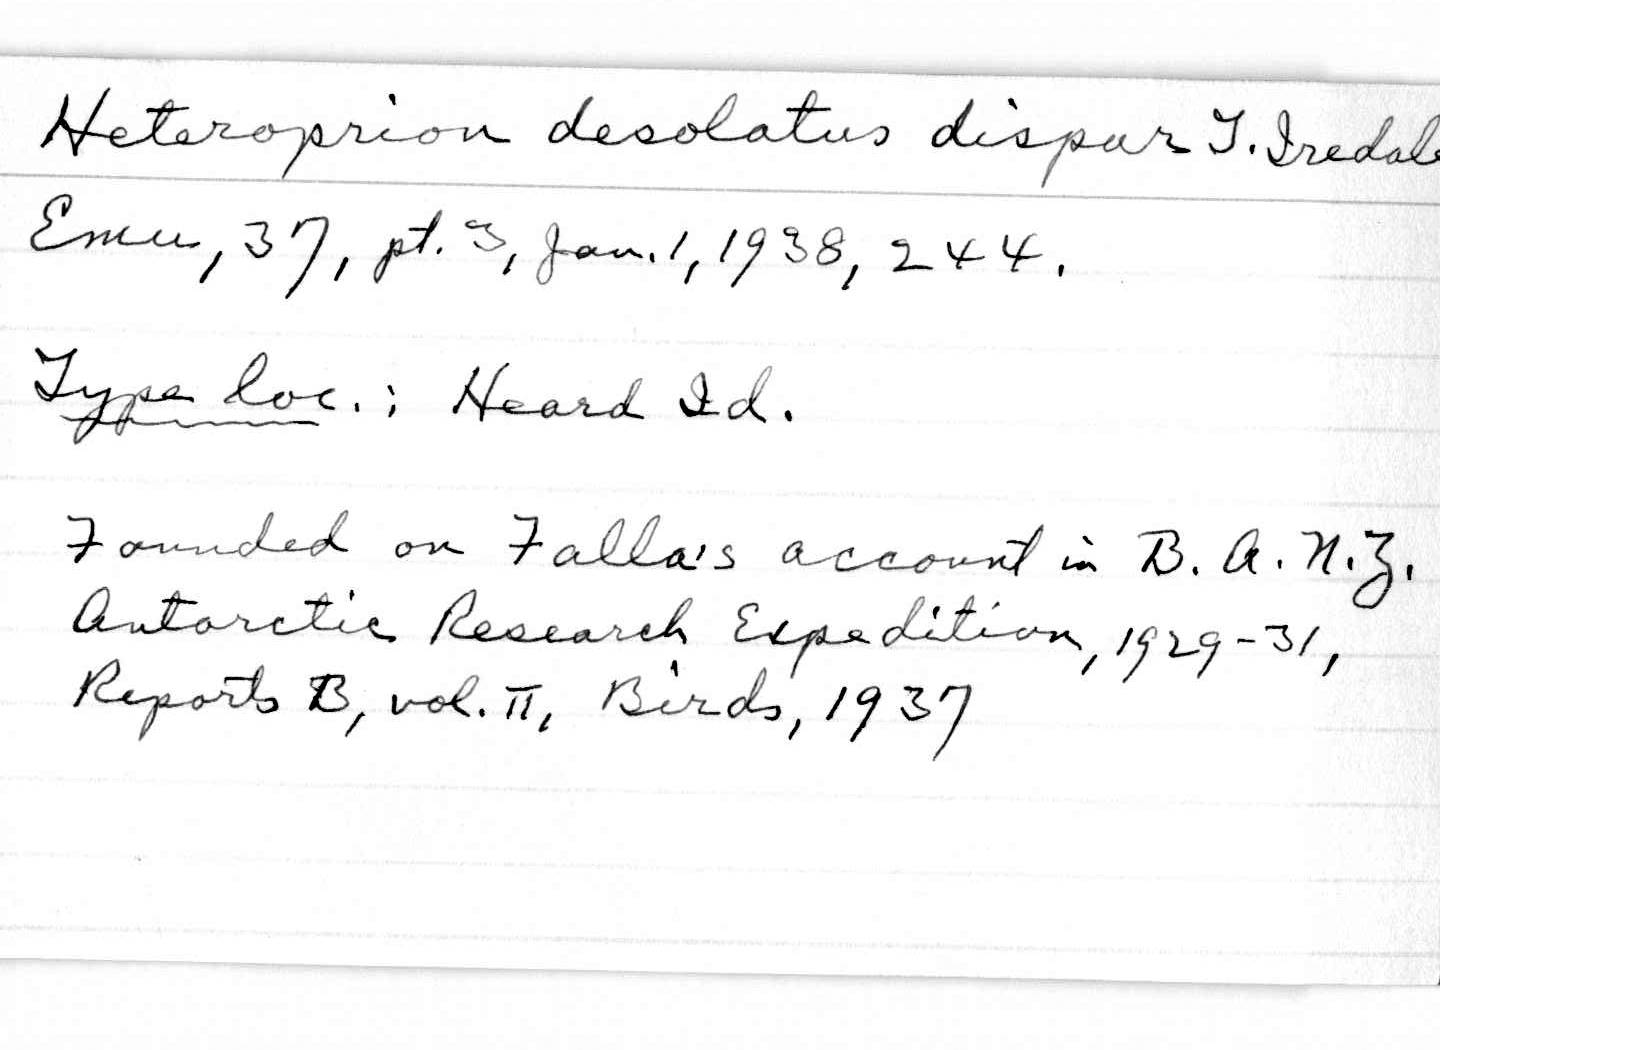 Heteroprion desolatus dispar T. Iredale
Emu, 37, pt. 3, Jan. 1, 1938, 244.
Type loc.: Heard Id.
Founded on Falla's account in B.A.N.Z.
Antarctic Research Expedition, 1929-31,
Reports B, vol. II, Birds, 1937